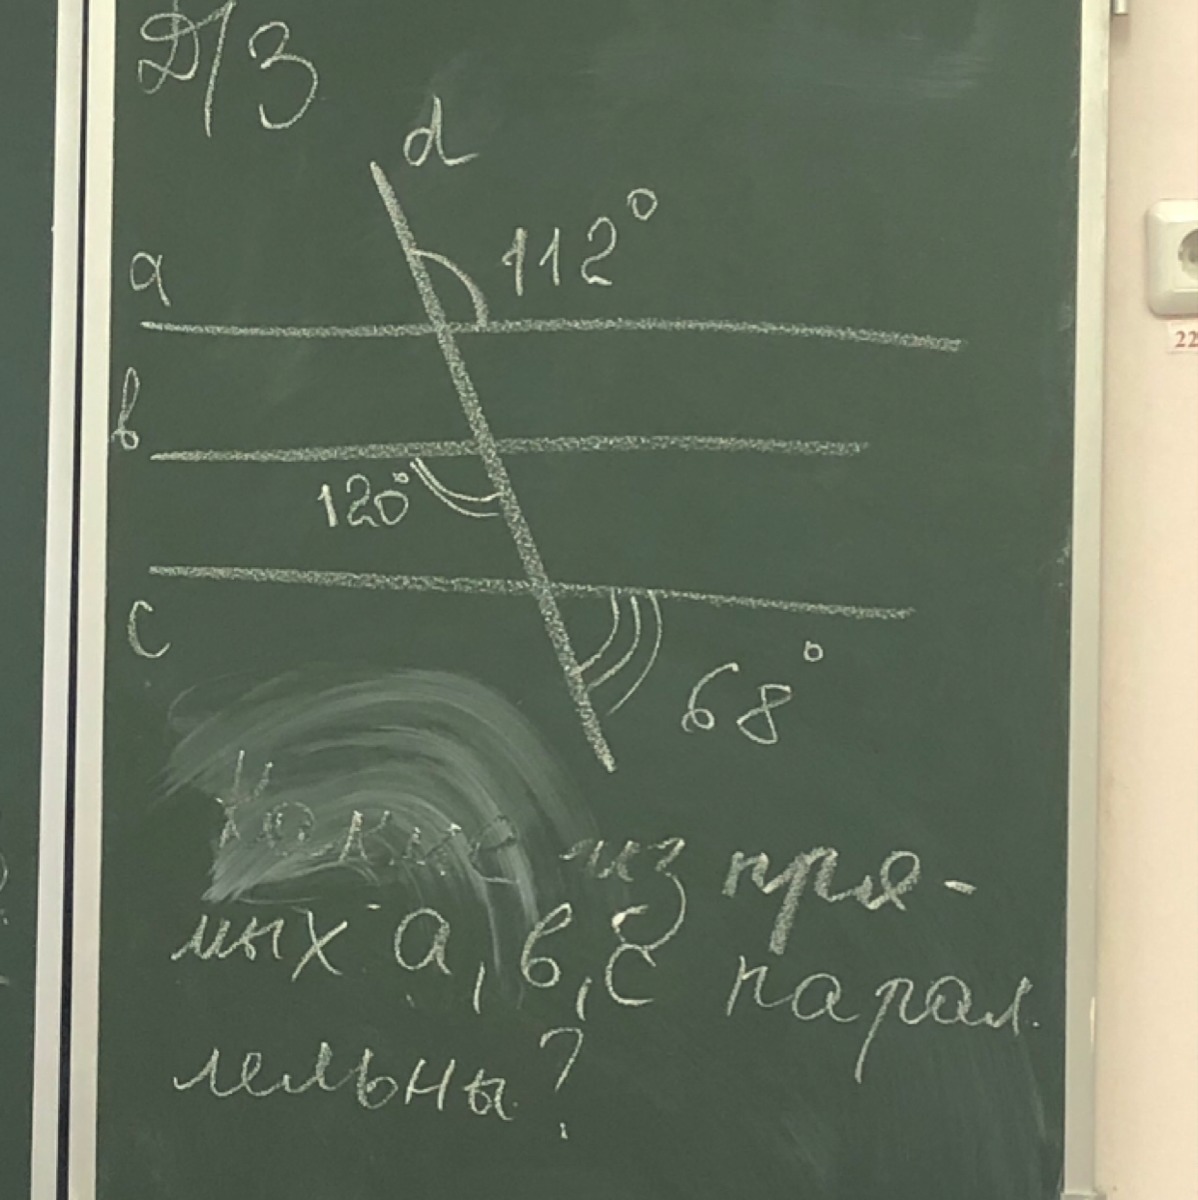 Д/З
d
112°
a
b
120°
c
68°
Какие из пря-
мых a, b, c парал.
лельны?
22